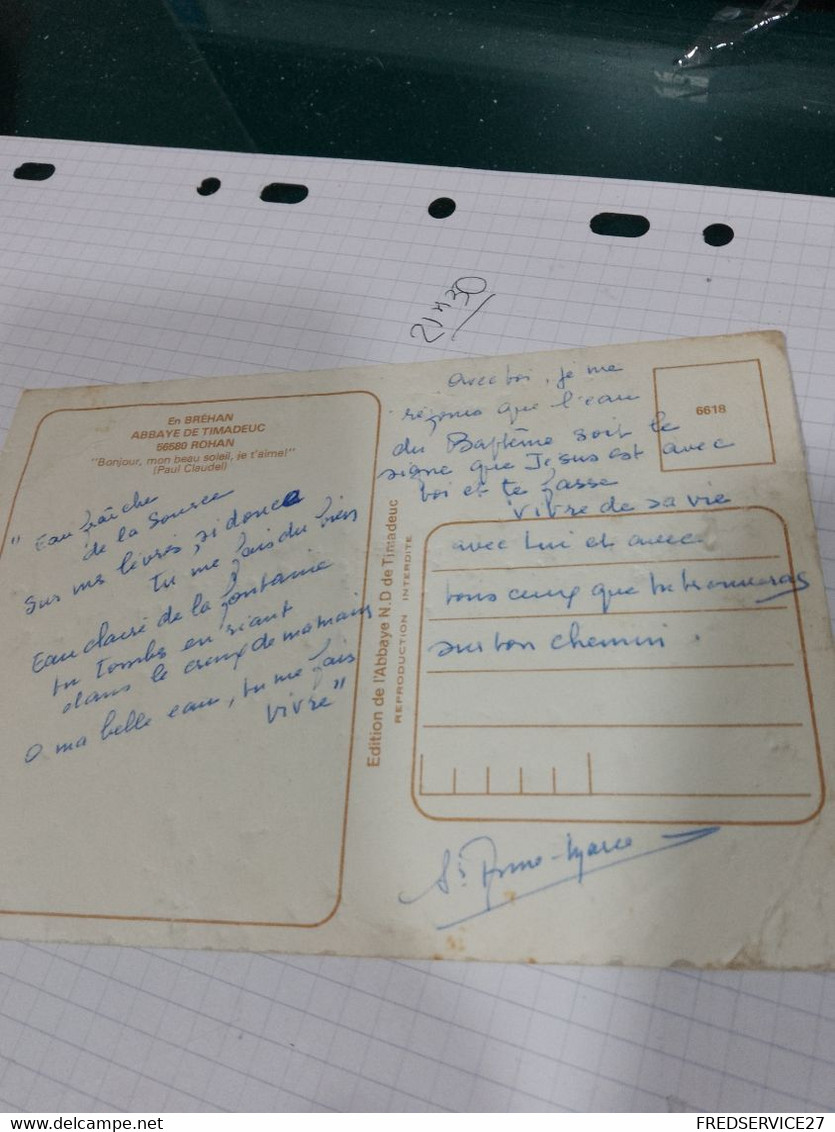 21430
En BRÉHAN
ABBAYE DE TIMADEUC
56580 ROHAN
"Bonjour, mon beau soleil, je t'aime!"
(Paul Claudel)
" Eau fraîche
de la source
Sur mes lèvres, si douce
Tu me fais du bien
Eau claire de la fontaine
tu tombes en riant
dans le creux de ma main
O ma belle eau, tu me fais
vivre"
Edition de l'Abbaye N.D de Timadeuc
REPRODUCTION INTERDITE
6618
avec toi, je me
réjouis que l'eau
du Baptême soit le
signe que Jésus est avec
toi et te fasse
vivre de sa vie
avec Lui et avec
tous ceux que tu trouveras
sur ton chemin.
Sr Anne-Marie
FREDSERVICE27